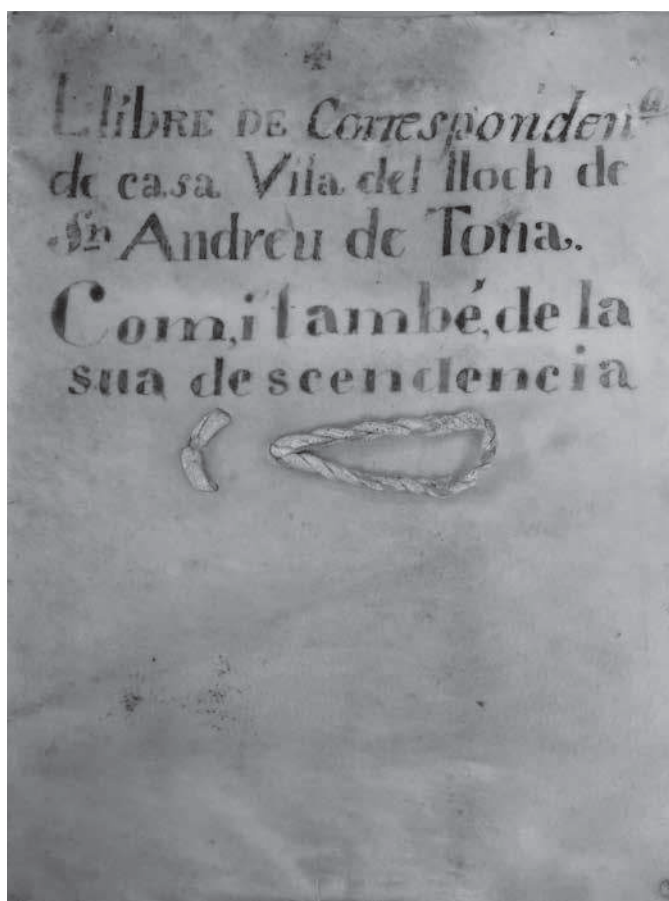 ✠
Llibre de Correspondenᵃ
de casa Vila del lloch de
Sn Andreu de Tona.
Com, i també, de la
sua descendencia